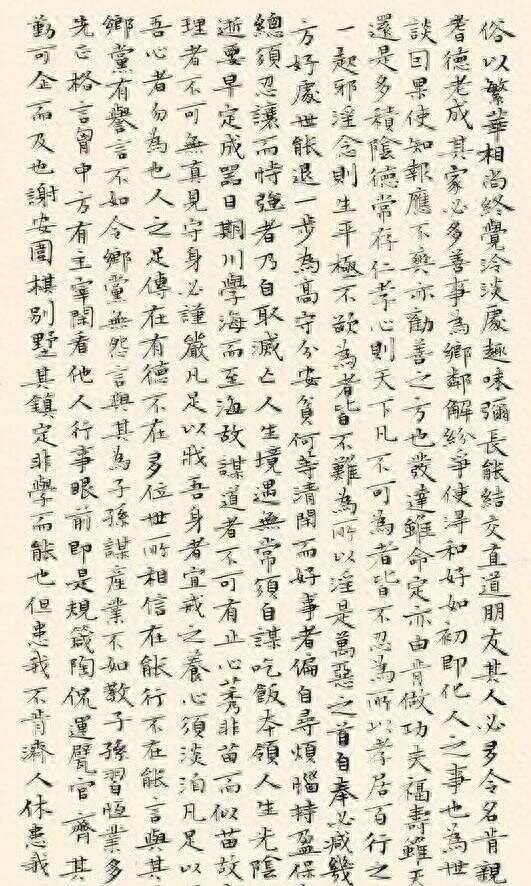 俗以繁華相尚終覺冷淡處趣味彌長能結交直道朋友其人必多令名肯親
耆德老成其家必多善事為鄉鄰解紛爭使得和好如初即化人之事也為世
談因果使知報應不爽亦勸善之方也發達雖命定亦由肯做功夫福壽雖天
還是多積陰德常存仁孝心則天下凡不可為者皆不忍為所以孝居百行之
一起邪淫念則生平極不欲為者皆不難為所以淫是萬惡之首自奉必減幾
方好處世能退一步為高守分安貧何等清閒而好事者偏自尋煩腦持盈保
總須忍讓而恃強者乃自取滅亡人生境遇無常須自謀吃飯本領人生光陰
逝要早定成器日期川學海而至海故謀道者不可有止心莠非苗而似苗故
理者不可無真見守身必謹嚴凡足以戕吾身者宜戒之養心須淡泊凡足以
吾心者勿為也人之足傳在有德不在多位世所相信在能行不在能言與其
鄉黨有譽言不如令鄉黨無怨言與其為子孫謀產業不如教子孫習恆業多
先正格言胷中方有主宰閑看他人行事眼前即是規箴陶侃運甓官齋其
勤可企而及也謝安圍棋別墅其鎮定非學而能也但患我不肯濟人休患我